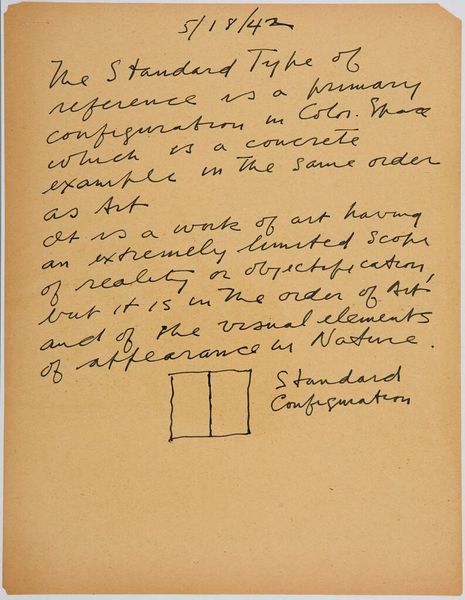 5/18/42
The Standard Type of
reference is a primary
configuration in Color. Space
which is a concrete
example in the same order
as Art
It is a work of art having
an extremely limited scope
of reality or objectification,
but it is in the order of Art
and of the visual elements
of appearance in Nature.
Standard
Configuration